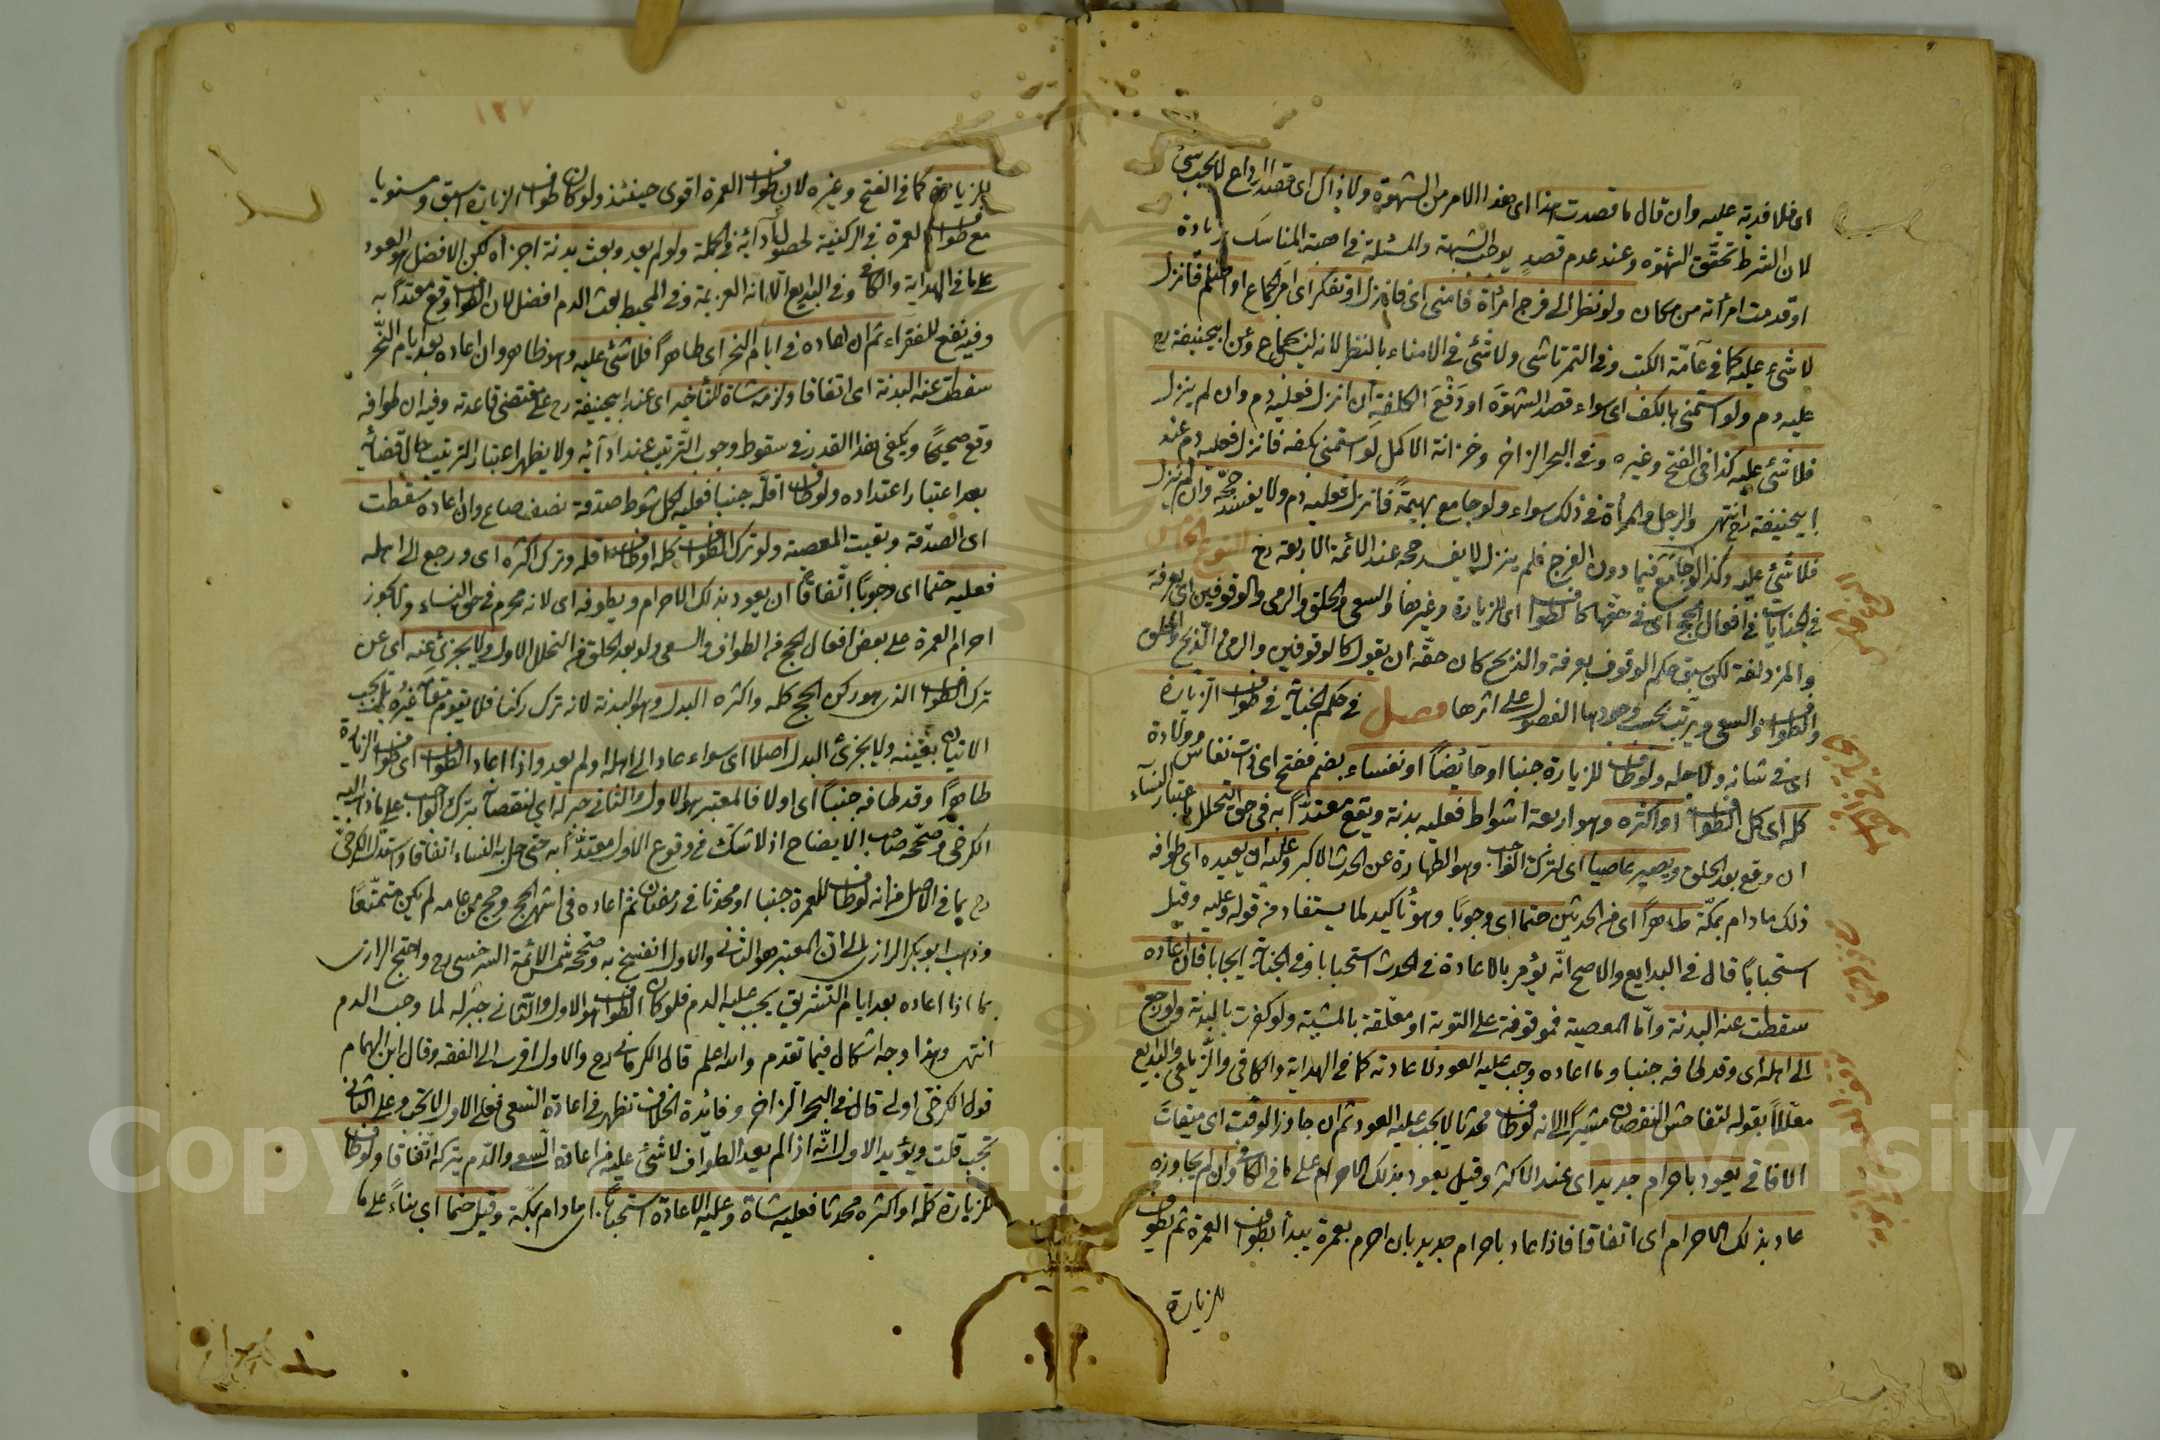 اى فلا فدية عليه وان قال ما قصدت هذا اى هذا الامر من الشهوة ولا ذاك اى قصد الوداع لا يجب شئ
لان الشرط تحقق الشهوة وعند عدم قصد يوجب الشبهة والمسئلة فى المناسك زيادة
او قدمت امرأته من مكان ولو نظر الى فرج امرأة فامنى اى فانزل او تفكر اى امر الجماع او احتلم فانزل
لا شئ عليه كما فى عامة الكتب وفى التمرتاشى ولا شئ فى الامناء بالنظر لانه ليس بجماع وعن ابيحنيفة رح
عليه دم ولو استمنى بالكف اى سواء قصد الشهوة او دفع الكلفة ان انزل فعليه دم وان لم ينزل
فلا شئ عليه كذا فى الفتح وغيره وفى البحر الزاخر وخزانة الاكمل لو استمنى بكفه فانزل فعليه دم عند
ابيحنيفة رح انتهى والرجل والمرأة فى ذلك سواء ولو جامع بهيمة فانزل فعليه دم ولا يفسد حجه وان لم ينزل
فلا شئ عليه وكذا لو جامع فيما دون الفرج فلم ينزل لا يفسد حجه عند الائمة الاربعة رح النوع الخامس
فى الجنايات فى افعال الحج اى فى حقها كالطواف اى للزيارة وغيرها والسعى والحلق والرمى والوقوفين اى بعرفة
والمزدلفة لكن سبق حكم الوقوف بعرفة والذبح كان حقه ان يقول كالوقوفين والرمى والذبح والحلق
والطواف والسعى ويرتب بحسب وجودها الفصول على اثرها فصل فى حكم الجناية فى طواف الزيارة
اى فى شانه ولاجله ولو طاف للزيارة جنبا او حائضا او نفساء بضم ففتح اى ذات نفاس وولادة
كله اى كل الطواف او اكثره وهو اربعة اشواط فعليه بدنة ويقع معتدا به فى حق التحلل باعتبار النساء
ان وقع بعد الحلق ويصير عاصيا اى لترك الواجب وهو الطهارة عن الحدث الاكبر وعليه ان يعيده اى طوافه
ذلك ما دام بمكة طاهرا اى من الحدثين حتما اى وجوبا وهو تأكيد لما يستفاد من قوله وعليه وقيل
استحبابا قال فى البدايع والاصح انه يؤمر بالاعادة فى الحدث استحبابا وفى الجناية ايجابا فان اعاده
سقطت عنه البدنة واما المعصية فموقوفة على التوبة او معلقة بالمشية ولو كفرت بالبدنة ولو رجع
الى اهله اى وقد طافه جنبا وما اعاده وجب عليه العود لاعادته كما فى الهداية والكافى والزيلعى والبدايع
معللا بقوله لتفاحش النقصان مشيرا الى انه لو طاف محدثا لا يجب عليه العود ثم ان جاوز الوقت اى ميقات
الافاقى يعود باحرام جديد اى عند الاكثر وقيل يعود بذلك الاحرام على ما فى الكافى وان لم يجاوزه
عاد بذلك الاحرام اى اتفاقا فاذا عاد باحرام جديد بان احرم بعمرة يبدأ بطواف العمرة ثم يطوف
للزيارة
١٢٧
للزيارة كما فى الفتح وغيره لان طواف العمرة اقوى حينئذ ولو كان طواف الزيارة اسبق ومستويا
مع طواف العمرة فى الركنية لحصول ادائه فى الجملة ولو لم يعد وبعث بدنة اجزاه لكن الافضل هو العود
على ما فى الهداية والكافى وفى البدايع الا انه العزيمة وفى المحيط بعث الدم افضل لان الطواف وقع معتدا به
وفيه نفع للفقراء ثم ان اعاده فى ايام النحر اى طاهرا فلا شئ عليه وهو ظاهر وان اعاده بعد ايام النحر
سقطت عنه البدنة اى اتفاقا ولزمه شاة للتأخير اى عند ابيحنيفة رح على مقتضى قاعدته وفيه ان طوافه
وقع صحيحا ويكفى هذا القدر فى سقوط وجوب الترتيب عند ادائه ولا يظهر اعتبار الترتيب حال قضائه
بعد اعتبار اعتداده ولو طاف اقله جنبا فعليه لكل شوط صدقة نصف صاع وان اعاده سقطت
اى الصدقة وبقيت المعصية ولو ترك الطواف كله او طاف اقله وترك اكثره اى ورجع الى اهله
فعليه حتما اى وجوبا اتفاقا ان يعود بذلك الاحرام ويطوفه اى لانه محرم فى حق النساء ولا يجوز
احرام العمرة على بعض افعال الحج من الطواف والسعى ولو بعد الحلق من التحلل الاول ولا يجزئ عنه اى عن
ترك الطواف الذى هو ركن الحج كله واكثره البدل وهو البدنة لانه ترك ركنا فلا يقوم مقامه غيره بل يجب
الاتيان بعينه ولا يجزئ البدل اصلا اى سواء عاد الى اهله او لم يعد واذا اعاد الطواف اى طواف الزيارة
طاهرا وقد طافه جنبا اى اولا فالمعتبر هو الاول والثانى جبر له اى لنقصانه بترك الواجب على ما ذهب اليه
الكرخى وصححه صاحب الايضاح اذ لا شك فى وقوع الاول معتدا به حتى حل به النساء اتفاقا واستدل الكرخى
رح بما فى الاصل من انه لو طاف للعمرة جنبا او محدثا فى رمضان ثم اعاده فى اشهر الحج وحج من عامه لم يكن متمتعا
وذهب ابو بكر الرازى الى ان المعتبر هو الثانى والاول انفسخ به وصححه شمس الائمة السرخسى رح واحتج الرازى
بما اذا اعاده بعد ايام التشريق يجب عليه الدم فلو كان الطواف هو الاول والثانى جبر له لما وجب الدم
انتهى وهذا وجه اشكال فيما تقدم والله اعلم قال الكرمانى رح والاول اقرب الى الفقه وقال ابن الهمام
قول الكرخى اولى قال فى البحر الزاخر وفائدة الخلاف تظهر فى اعادة السعى فعلى الاول لا تجب وعلى الثانى
تجب قلت ويؤيد الاول انه اذا لم يعد الطواف لا شئ عليه من اعادة السعى والدم بتركه اتفاقا ولو طاف
للزيارة كله او اكثره محدثا فعليه شاة وعليه الاعادة استحبابا اى ما دام بمكة وقيل حتما اى بناء على ما
Copyright © King Saud University